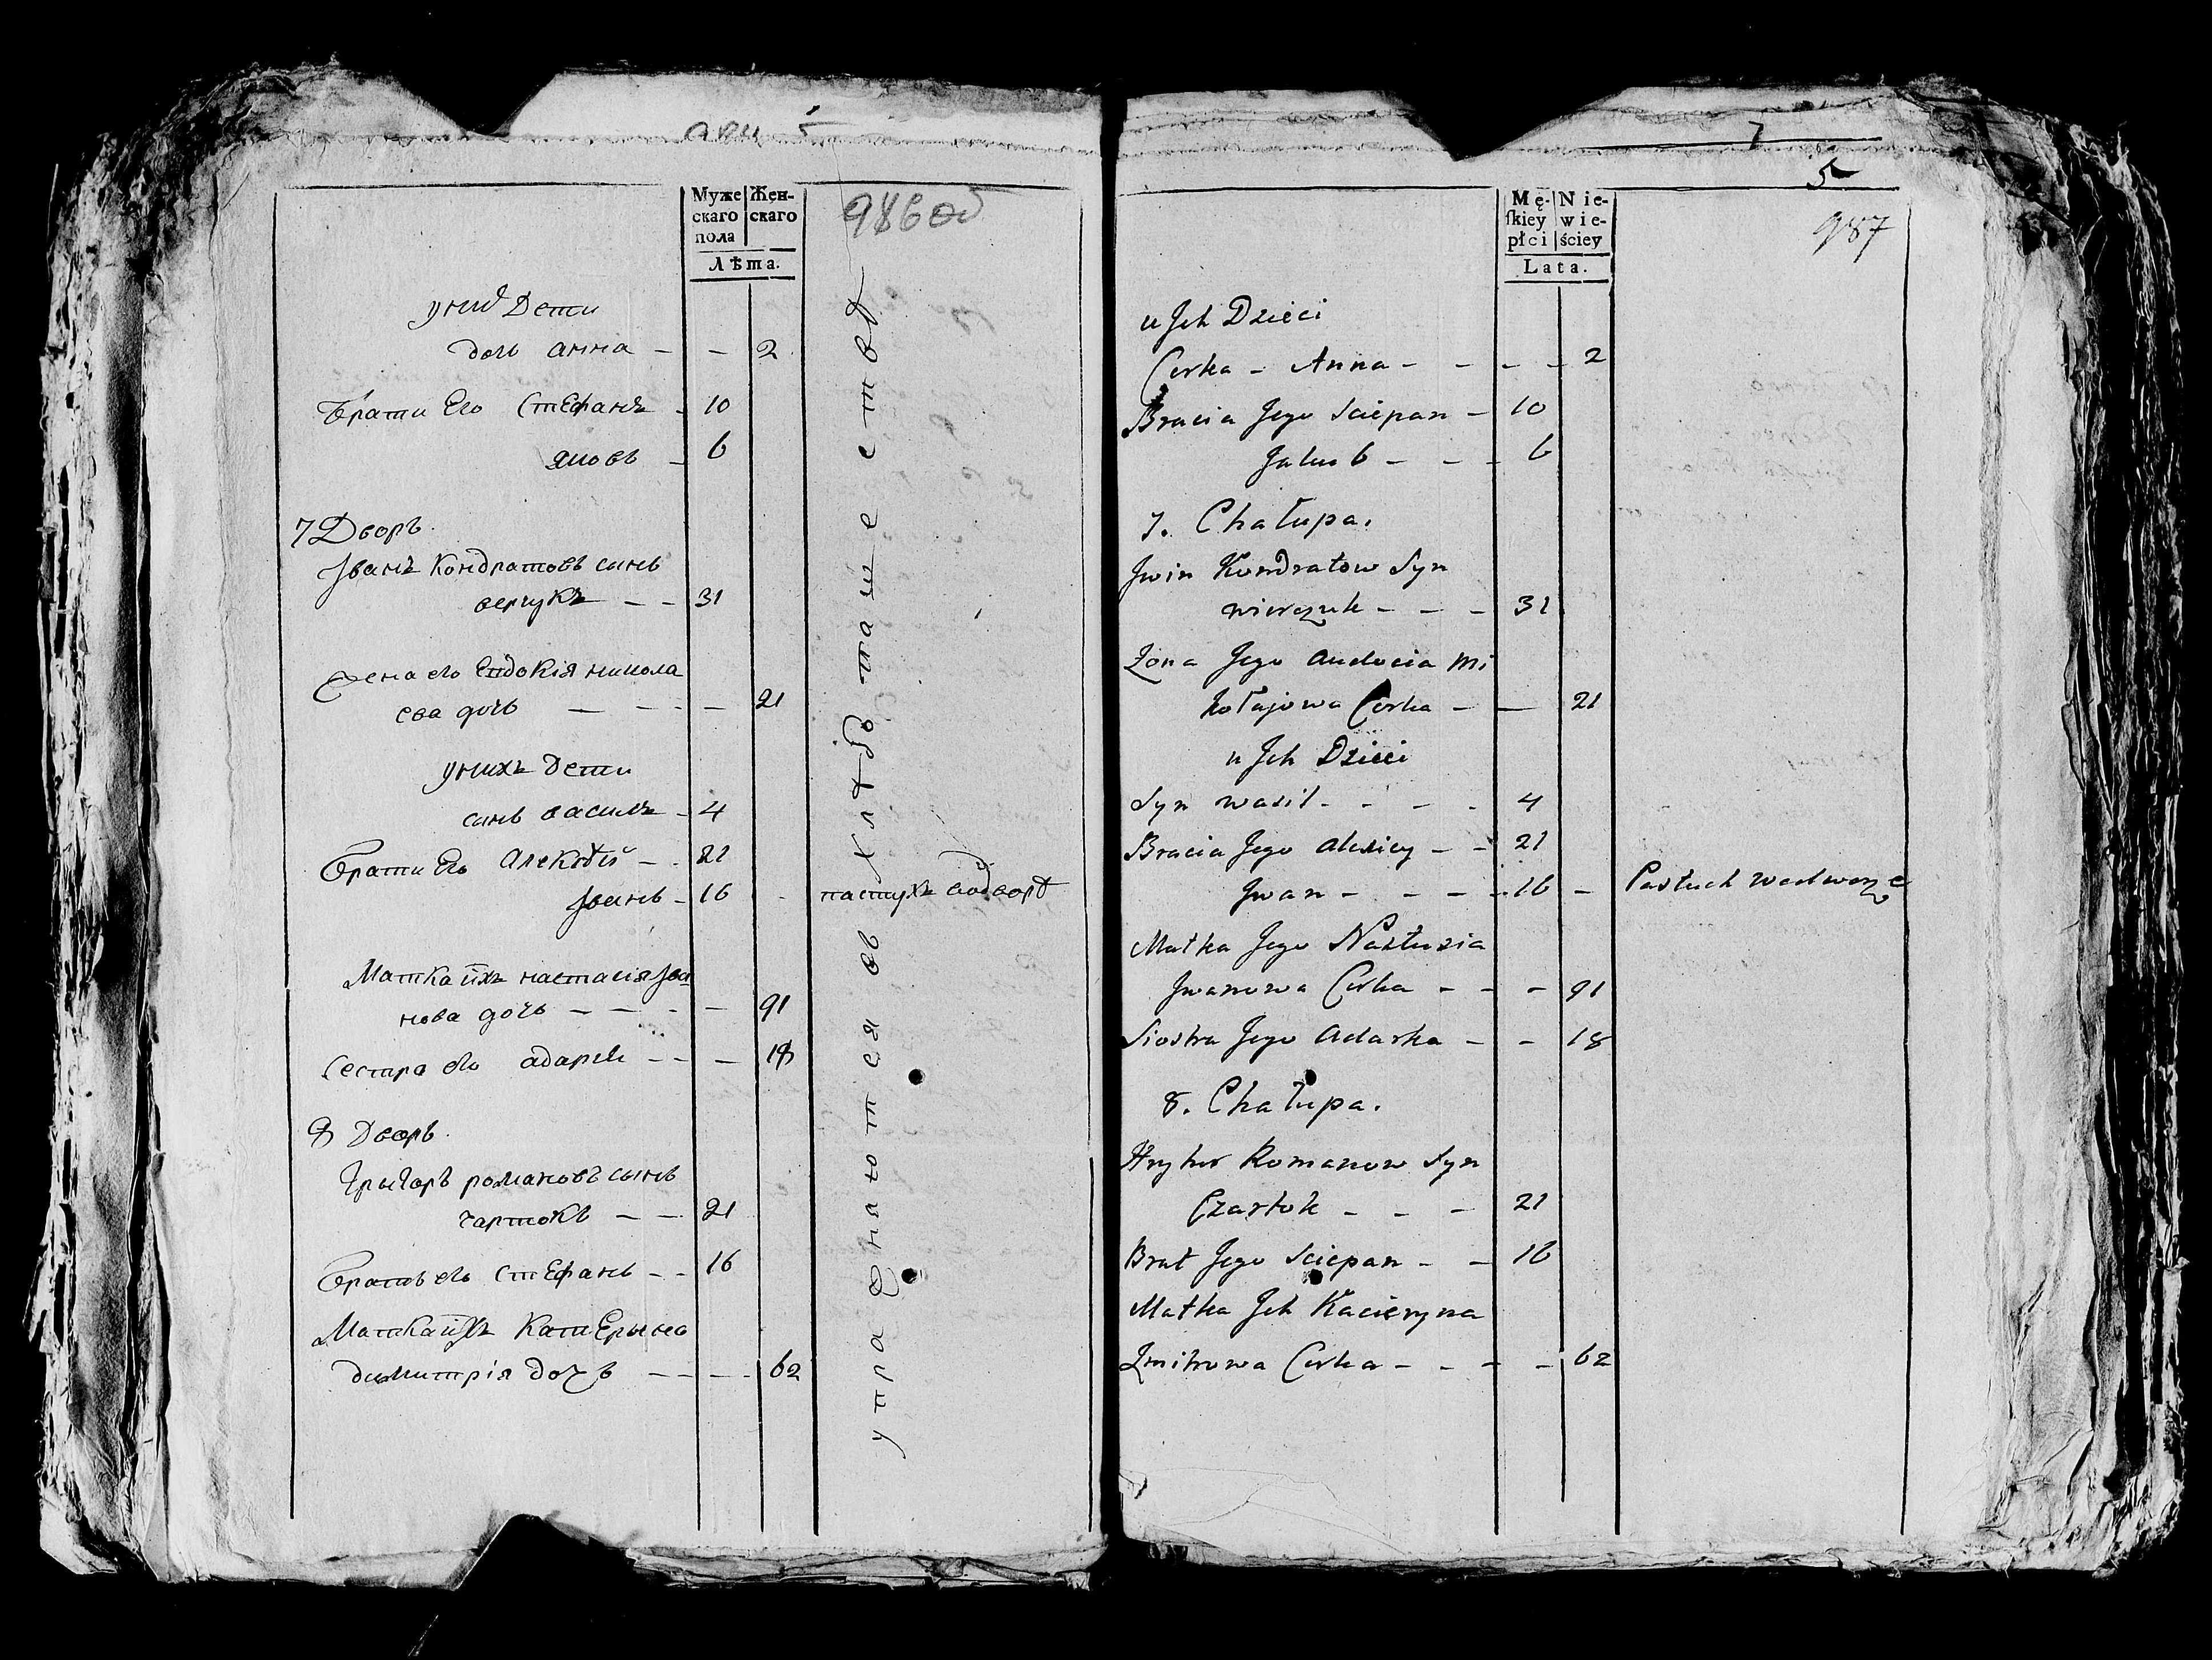 5
Муже
скаго
пола
Жен-
скаго
Лѣта.
986 об
Дети
дочь анна - - 2
брати Его Стефанъ - 10
яковъ - 6
7 Дворъ.
Іванъ Кондратовъ сынъ
верчукъ - - 31
жена его Евдокія никола
ева дочь - - - - 21
у нихъ дети
сынъ василъ - 4
брати Его Алексѣй - - 21
Іванъ - 16 - пастухъ
Матка ихъ настасія Іва
нова дочь - - - - 91
сестра его адарка - - - 18
8 Дворъ.
Грыгоръ романовъ сынъ
чартокъ - - 21
братъ его Стефанъ - - 16
Матка ихъ Катерына
димитрія дочь - - - - 62
упражняются въ хлѣбопашествѣ
7
5
987
Mę-
skiey
płci
Nie-
wie-
ściey
Lata.
u Jch Dzieci
Corka - Anna - - - - 2
Bracia Jego Sciepan - 10
Jakub - - - 6
7. Chałupa.
Jwan Kondratow Syn
wierczuk - - - 31
Żona Jego Audocia Mi
kołajowa Corka - - 21
u Jch Dzieci
Syn wasil - - - - 4
Bracia Jego Alexiey - - 21
Jwan - - - - 16 - Pastuch we dworze
Matka Jego Nastazia
Jwanowa Corka - - - 91
Siostra Jego Adarka - - 18
8. Chałupa.
Hryhor Romanow Syn
Czartok - - - 21
Brat Jego Sciepan - - 16
Matka Jch Kacieryna
Zmitrowa Corka - - - - 62